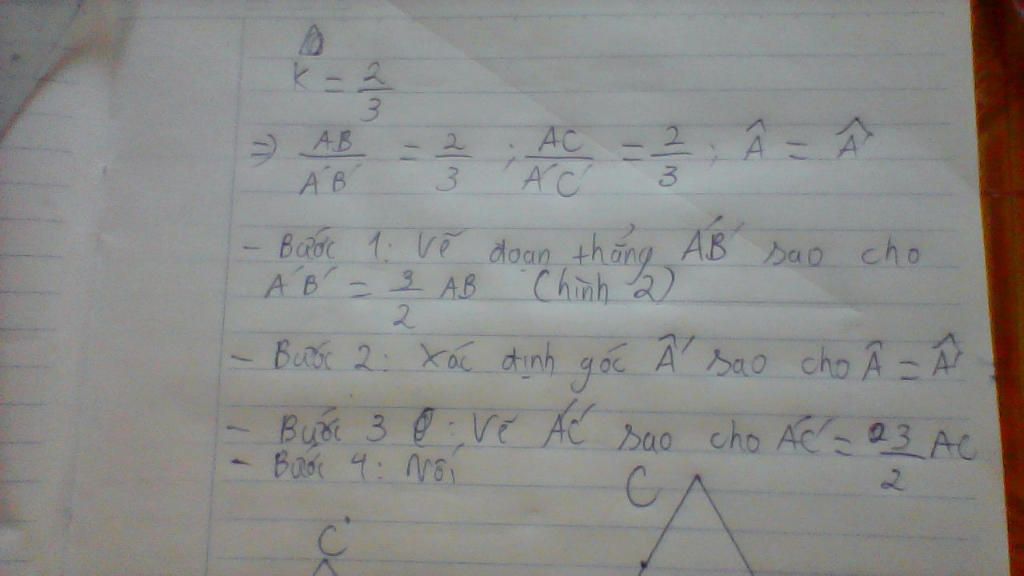 k = 2/3
⇒ AB/A'B' = 2/3 ; AC/A'C' = 2/3 ; Â = Â'
- Bước 1: Vẽ đoạn thẳng A'B' sao cho
A'B' = 3/2 AB (hình 2)
- Bước 2: Xác định góc Â' sao cho Â = Â'
- Bước 3 : Vẽ A'C' sao cho A'C' = 3/2 AC
- Bước 4: Nối
C
C'